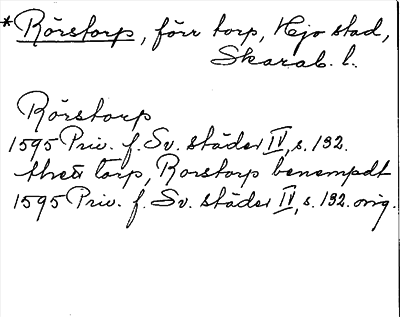 *Rörstorp, förr torp, Hjo stad,
Skarab. l.
Rörstorp
1595 Priv. f. Sv. städer IV, s. 192.
thett torp, Rorstorp benempdt
1595 Priv. f. Sv. städer IV, s. 192. orig.